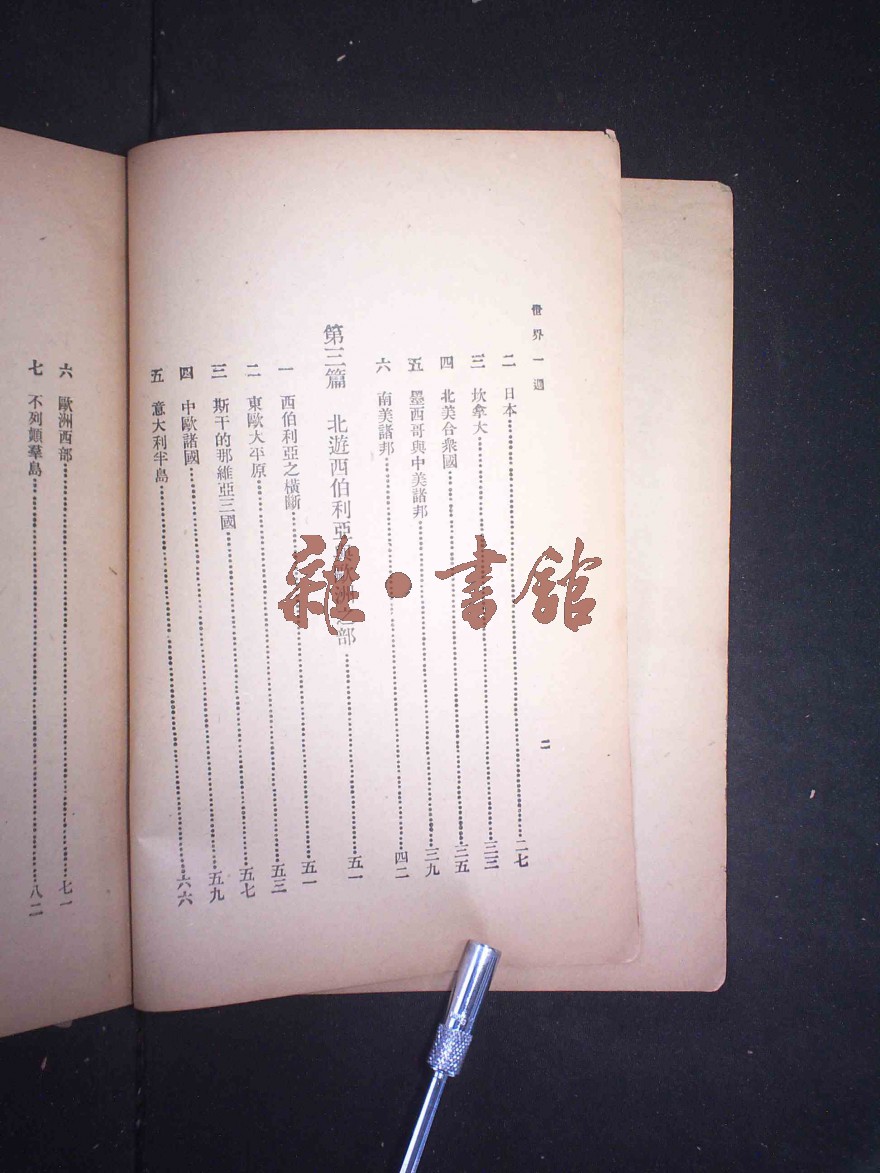 世界一週
二
二 日本 二七
三 坎拿大 三三
四 北美合衆國 三五
五 墨西哥與中美諸邦 三九
六 南美諸邦 四二
第三篇 北遊西伯利亞 歐洲之部 五一
一 西伯利亞之橫斷 五一
二 東歐大平原 五三
三 斯干的那維亞三國 五七
四 中歐諸國 五九
五 意大利半島 六六
六 歐洲西部 七一
七 不列顛羣島 八二
雜·書館